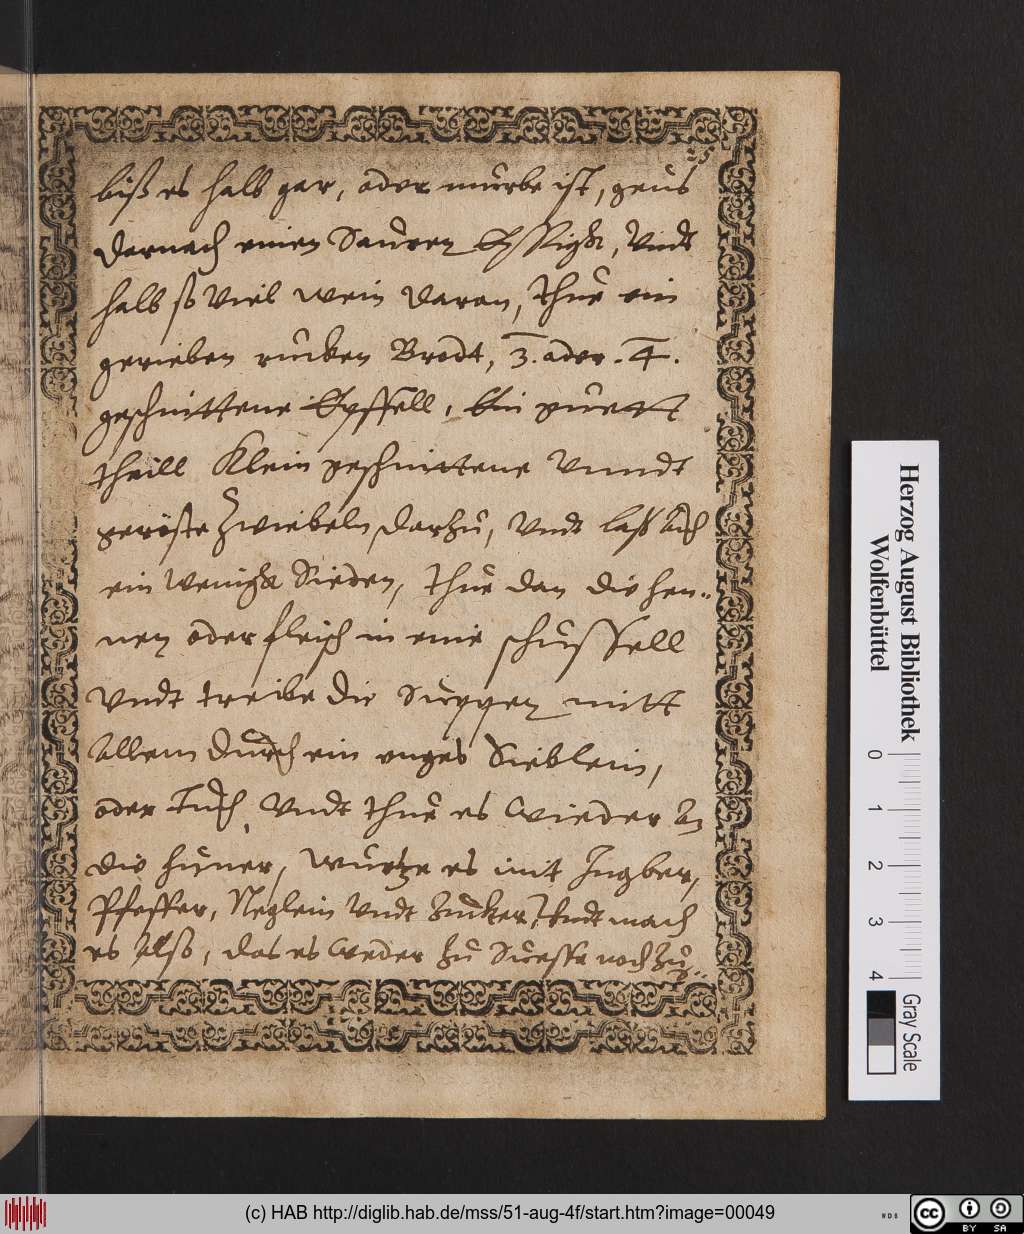 25
biß es halb gar, oder mürbe ist, geus
darnach einen Sauren Essigk, Vndt
halb so Viel wein daran, thue ein
gerieben rucken Brodt, 3. oder .4.
geschnittene Epffell, Ein
theill Klein geschnittene Vnndt
geröste Zwiebeln darzu, Vndt laß
ein wenigk Sieden, thue dan die hen¬
nen oder fleisch in eine schussell
Vndt treibe die Suppen mitt
Allem durch ein enges Sieblein,
oder Tuch, Vndt thue es wieder An
die hüner, wurtze es mit Ingber,
Pfeffer, Neglein Vndt Zucker, Vndt mach
es Also, das es weder Zu Suesse noch Zu¬
Herzog August Bibliothek
Wolfenbüttel
0 1 2 3 4
Gray Scale
(c) HAB http://diglib.hab.de/mss/51-aug-4f/start.htm?image=00049
WDB
cc
BY SA